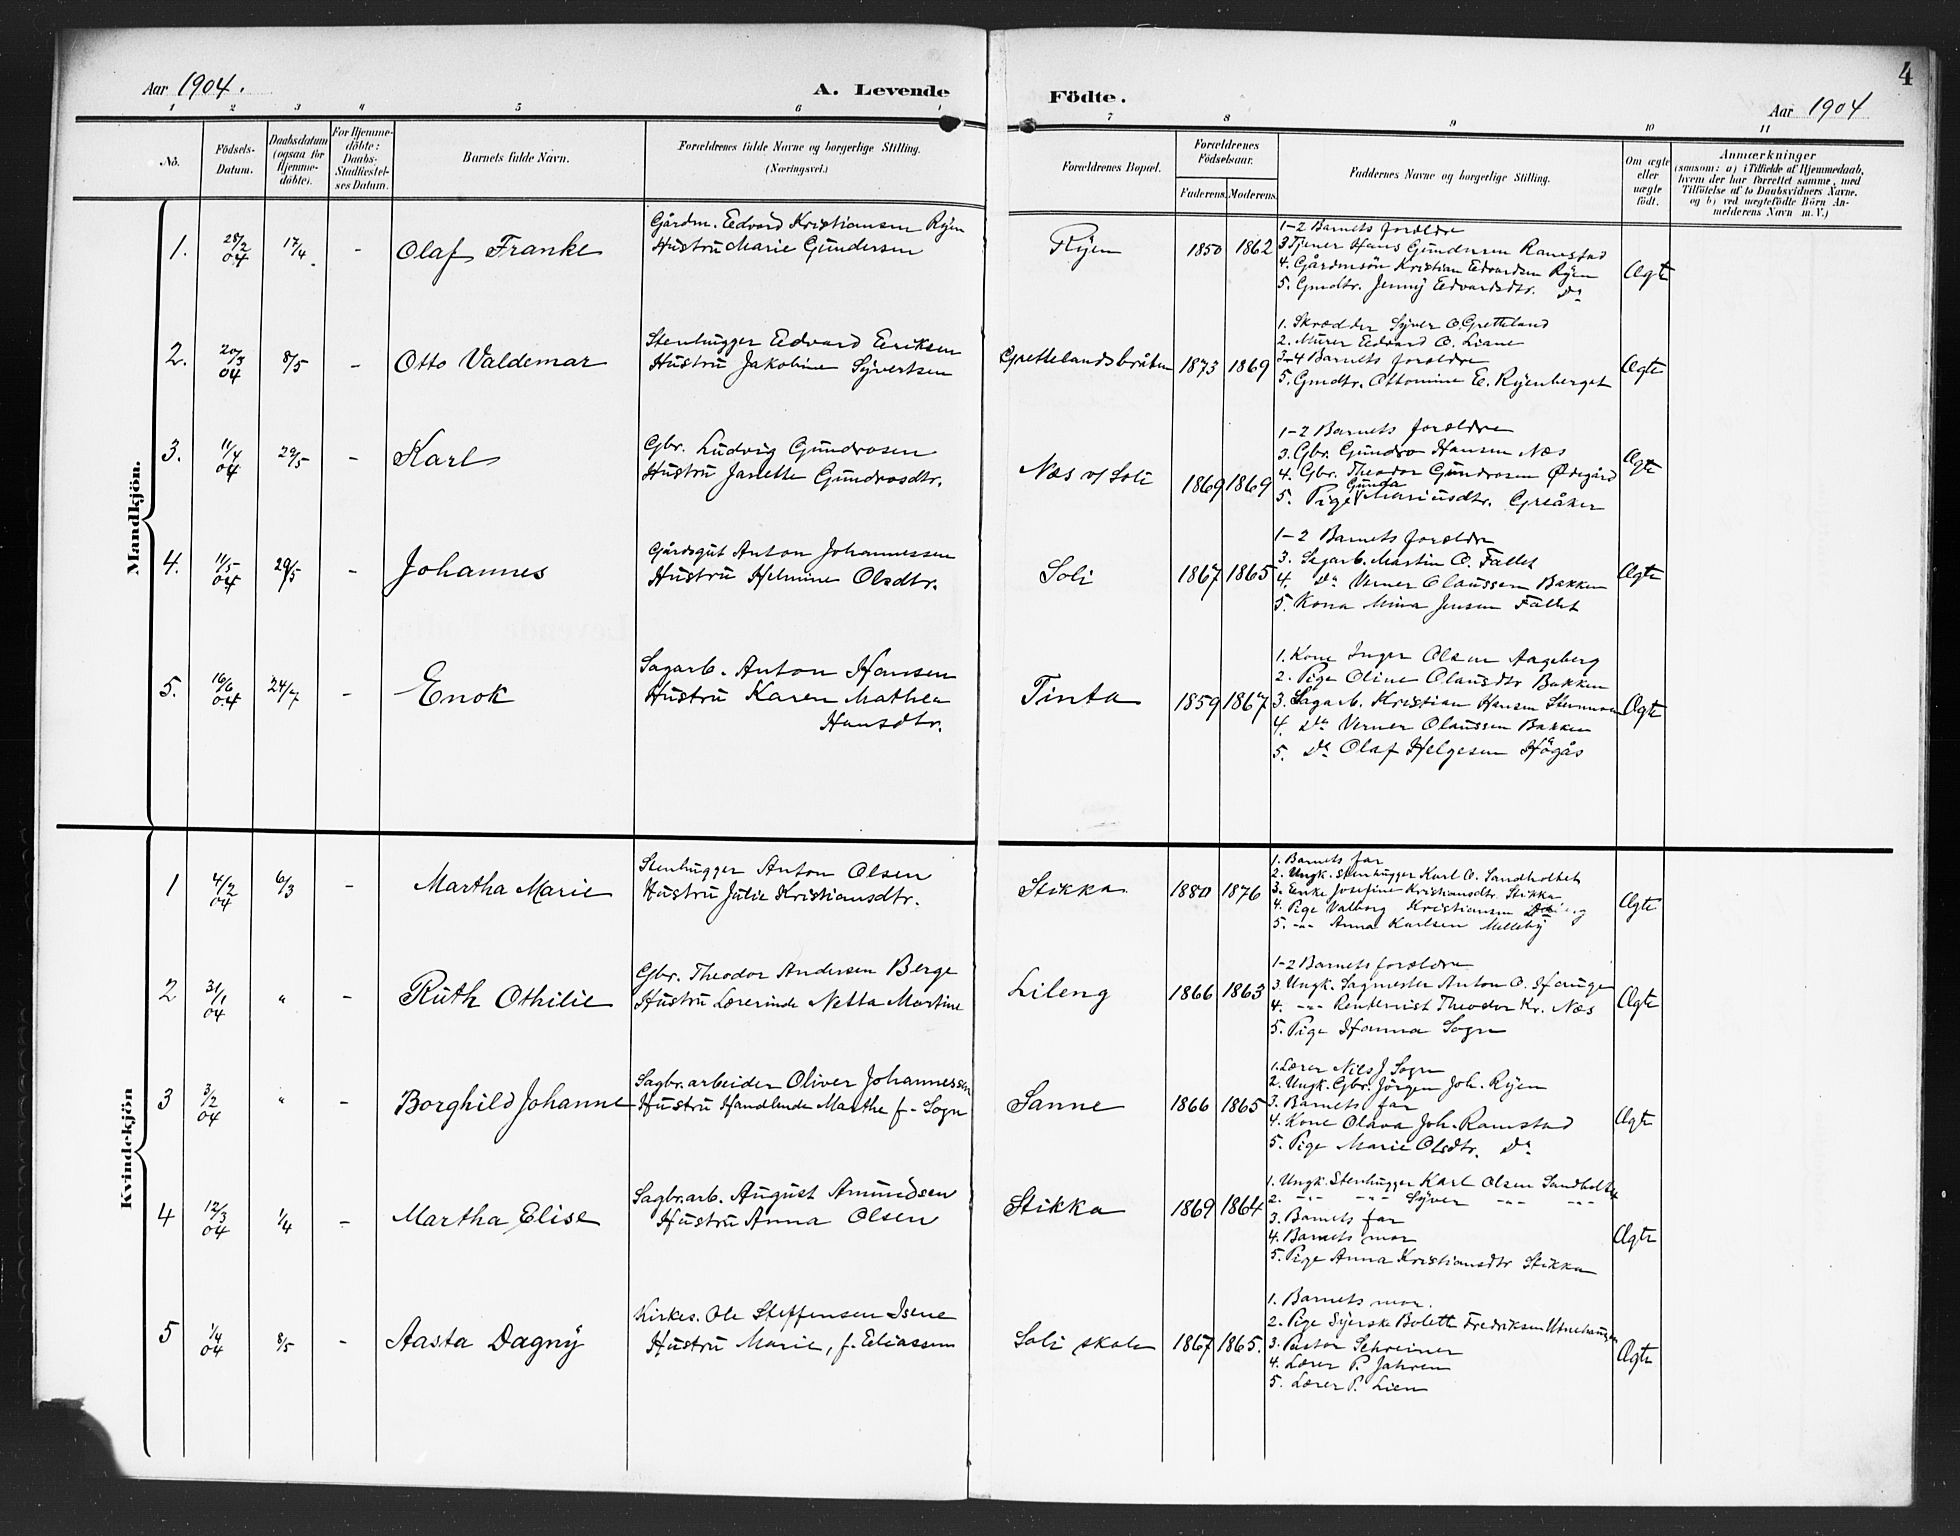 Aar 1904.
A. Levende Födte.
Aar 1904
4
1 2 3 4 5 6 7 8 9 10 11
No.
Födsels-Datum.
Daabsdatum (ogsaa for Hjemme-döbte).
For Hjemme-döbte: Daabs-Stadfæstel-ses Datum.
Barnets fulde Navn.
Forældrenes fulde Navne og borgerlige Stilling.
(Næringsvei.)
Forældrenes Bopæl.
Forældrenes Födselsaar.
Faderens. Moderens.
Faddernes Navne og borgerlige Stilling.
Om ægte eller uægte födt.
Anmærkninger
(saasom: a) i Tilfælde af Hjemmedaab,
hvem der har forrettet samme, med
Tilföielse af to Daabsvidners Navne.
og b) ved uægtefödte Börn An-
melderens Navn m. V.)
Mandkjön.
1. 28/2 04 17/4 - Olaf Franke
Gårdm. Edvard Kristiansen Ryen
Hustru Marie Gundersen
Ryen 1850 1862
1-2 Barnets foreldre
3 Tjener Hans Gundersen Ramstad
4. Gårdmsön Kristian Edvardsen Ryen
5. Gmdtr. Jenny Edvardsdtr. Do
Ægte
2. 20/3 04 8/5 - Otto Valdemar
Stenhugger Edvard Eriksen
Hustru Jakobine Syvertsen
Grettelandsbråten 1873 1869
1. Skrædder Syver O. Gretteland
2. Murer Edvard O. Liane
3-4 Barnets foreldre
5. Gmdtr. Ottomine E. Ryenberget
Ægte
3. 11/4 04 29/5 - Karl
Gbr. Ludvig Gundrosen
Hustru Janette Gundrosdtr.
Næs v/ Soli 1869 1869
1-2 Barnets foreldre
3. Gbr. Gundro Hansen Næs
4. Gbr. Theodor Gundrosen Ødegård
5. Pige Gunda Mariusdtr. Greåker
Ægte
4. 11/5 04 29/5 - Johannes
Gårdsgut Anton Johannessen
Hustru Helmine Olsdtr.
Soli 1867 1865
1-2 Barnets foreldre
3. Sagarb. Martin O. Fallet
4. Do Verner Olaussen Bakken
5. Kona Mina Jensen Fallet
Ægte
5. 16/6 04 24/7 - Enok
Sagarb. Anton Hansen
Hustru Karen Mathea
Hansdtr.
Tinta 1859 1867
1. Kone Inger Olsen Aageberg
2. Pige Oline Olausdtr Bakken
3. Sagarb. Kristian Hansen
4. Do Verner Olaussen Bakken
5. Do Olaf Helgesen Högås
Ægte
Kvindekjön
1 4/2 04 6/3 - Martha Marie
Stenhugger Anton Olsen
Hustru Julie Kristiansdtr.
Stikka 1880 1876
1. Barnets far
2. Ungk. Stenhugger Karl O. Sandholtet
3. Enke Josefine Kristiansdtr. Stikka
4. Pige Valborg Kristiansen
5. -"- Anna Karlsen Melleby
Ægte
2 31/1 04 " - Ruth Othilie
Gbr. Theodor Andersen Berge
Hustru Lærerinde Netta Martine
Lileng 1866 1863
1-2 Barnets foreldre
3. Ungk. Sagmester Anton O. Hauge
4. -"- Rentenist Theodor Kr. Næs
5. Pige Hanna Sogn
Ægte
3 3/2 04 " - Borghild Johanne
Sagbr.arbeider Oliver Johannessen
Hustru Handlende Marthe f. Sogn
Sanne 1866 1865
1. Lærer Nils J. Sogn
2. Ungk. Gbr. Jörgen Joh. Ryen
3. Barnets far
4. Kone Olava Joh. Ramstad
5. Pige Marie Olsdtr. Do
Ægte
4 12/3 04 1/4 - Martha Elise
Sagbr.arb. August Amundsen
Hustru Anna Olsen
Stikka 1869 1864
1. Ungk. Stenhugger Karl Olsen Sandholtet
2. -"- -"- Syver -"- -"-
3. Barnets far
4. Barnets mor
5. Pige Anna Kristiansdtr Stikka
Ægte
5 1/4 04 8/5 - Aasta Dagny
Kirkes. Ole Steffensen Isene
Hustru Marie, f. Eliassen
Soli skole 1867 1865.
1. Barnets mor.
2. Pige Syerske Bolette Fredriksen Utnehaugen
3. Pastor Schreiner
4. Lærer P. Jahren
5. Lærer P. Lien
Ægte